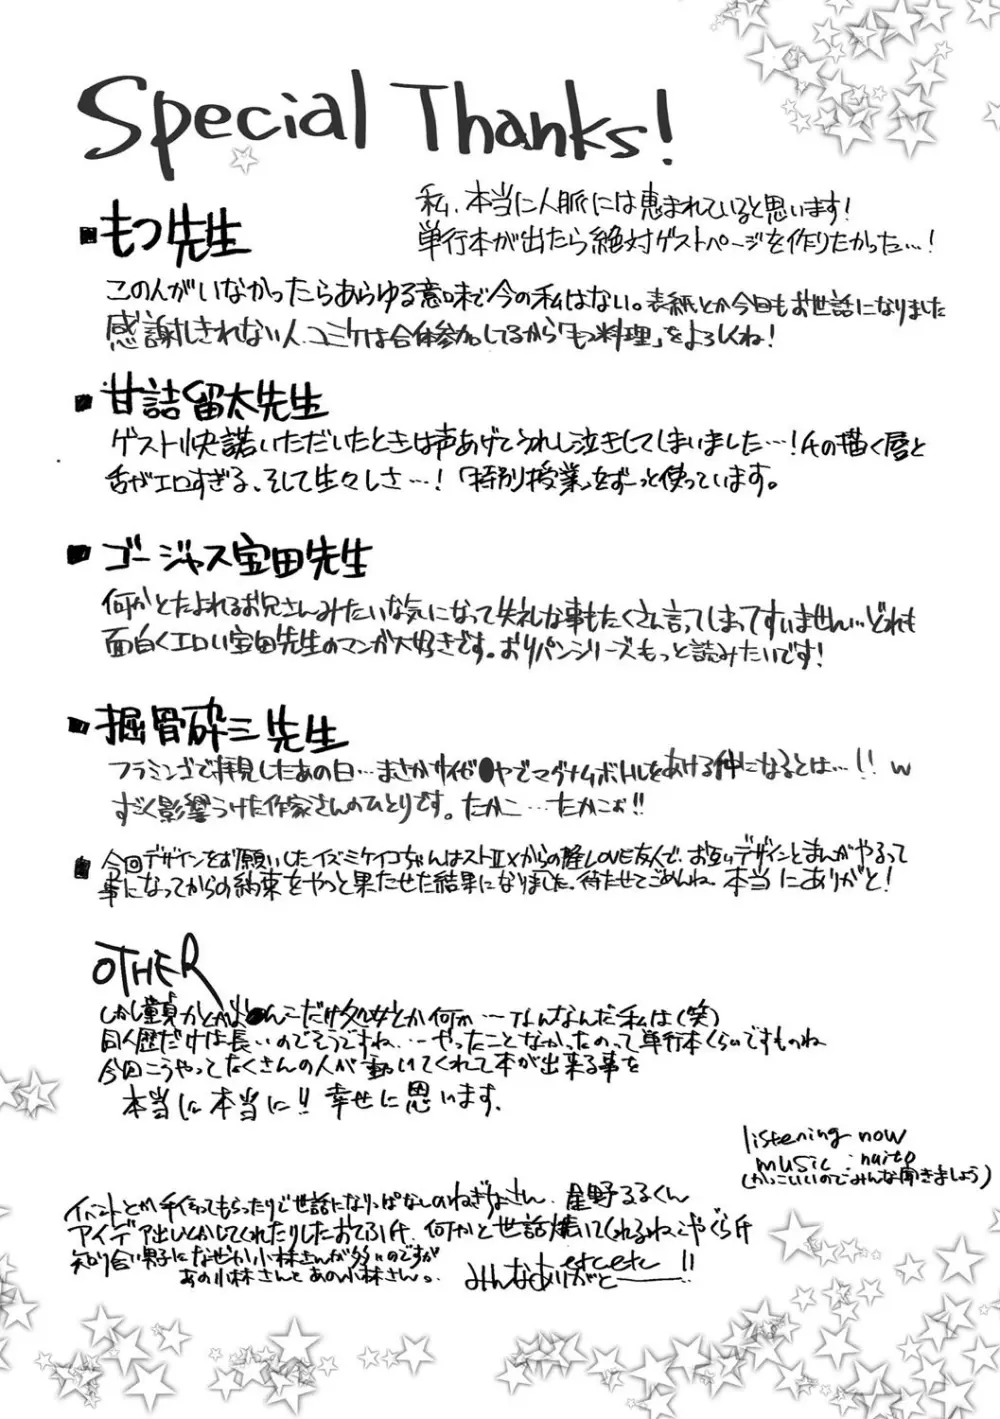 Special Thanks!
私、本当に人脈には恵まれていると思います!
単行本が出たら絶対ゲストページを作りたかった…!
■もつ先生
この人がいなかったらあらゆる意味で今の私はない。表紙とか今回もお世話になりました
感謝しきれない人。コミケは合体参加してるから「もつ料理」をよろしくね!
■甘詰留太先生
ゲスト快諾いただいたときは声あげてうれし泣きしてしまいました…!Ａの描く唇と
舌がエロすぎる、そして生々しさ…!「特別授業」をずーっと使っています。
■ゴージャス宝田先生
何かとたよれるお兄さんみたいな気になって失礼な事もたくさん言ってしまってすいません…どれも
面白くエロい宝田先生のマンガ大好きです。おりパンシリーズもっと読みたいです!
■掘骨砕三先生
フラミンゴで拝見したあの日…まさかサイゼ●ヤでマグナムボトルをあける仲になるとは…!!w
すごく影響うけた作家さんのひとりです。たかこ…たかこぉ!!
■今回デザインをお願いしたイズミケイコちゃんはストⅡXからの隆LOVE友人で、お互いデザインとまんがやるって
事になってからの約束をやっと果たせた結果になりました。待たせてごめんね。本当にありがと!
OTHER
しかし童貞かとか●んこだけ処女とか何か…なんなんだ私は(笑)
同人歴だけは長いのでそうですね…やったことなかったのって単行本くらいですものね
今回こうやってたくさんの人が動いてくれて本が出来る事を
本当に本当に!!幸せに思います。
listening now
music : naito
(かっこいいのでみんな聞きましょう)
イベントとか手伝ってもらったりで世話になりっぱなしのねぎなさん、星野るるくん
アイデア出しとかしてくれたりしたおてふ氏、何かと世話焼いてくれるねこやぐら氏
知り合い男子になぜか小林さんが多いのですが
あの小林さんとあの小林さん。
etc etc
みんなありがとー!!